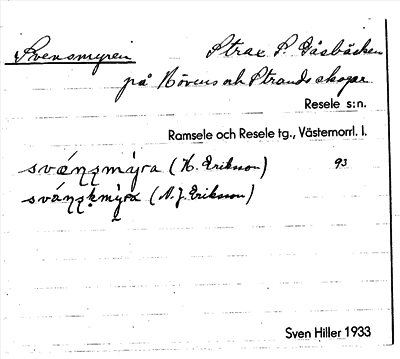 Svensmyren Strax S. Gåsbäcken
på Növens och Strands skogar
Resele s:n.
Ramsele och Resele tg., Västernorrl. l.
(K. Erikson) 93
(A. J. Erikson)
Sven Hiller 1933